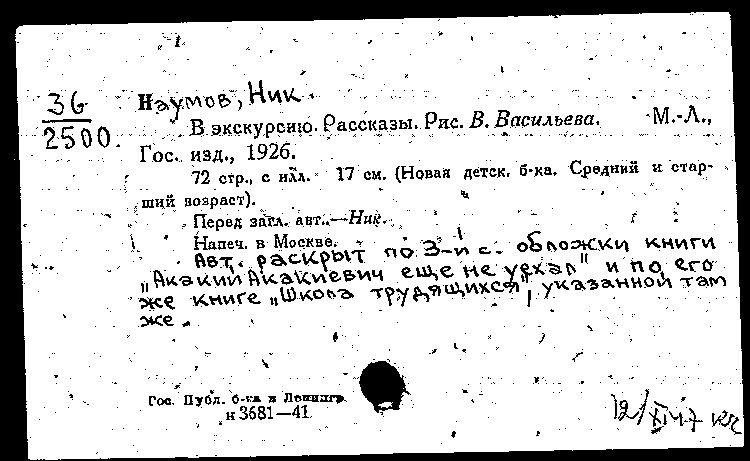 36
2500.
Наумов, Ник.
В экскурсию. Рассказы. Рис. В. Васильева. М.-Л.,
Гос. изд., 1926.
72 стр., с илл. 17 см. (Новая детск. б-ка. Средний и стар-
ший возраст).
Перед загл. авт.—Ник.
Напеч. в Москве.
Авт. раскрыт по 3-й с. обложки книги
„Акакий Акакиевич еще не уехал" и по его
же книге „Школа трудящихся", указанной там
же.
Гос. Публ. б-ка в Ленингр.
н 3681—41
12/XI-47